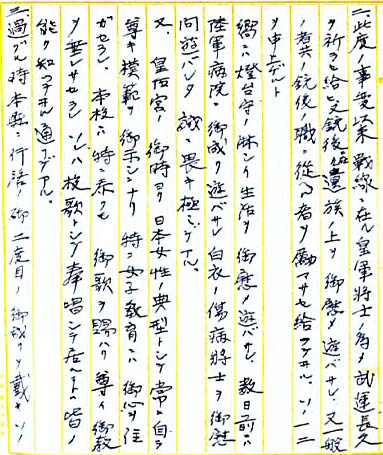 二此度ノ事変以来戦線ニ在ル皇軍將士ノ為メ武運長久
ヲ祈ラセ給ヒ又銃後遺族ノ上ヲ御慰メ遊バサレ、又一般
ノ者共ノ銃後ノ職ニ從フ者ヲ励マサセ給フテヰル。ソノ一二
ヲ申上ゲルト
嚮ニ燈台守ノ淋シイ生活ヲ御慰メ遊バサレ、数日前ニハ
陸軍病院ニ御成リ遊バサレ白衣ノ傷病將士ヲ御慰
問遊バレタ誠ニ畏キ極ミデアル。
又、皇后宮ハ御時ヨリ日本女性ノ典型トシテ常ニ自ラ
尊キ模範ヲ御示シナリ特ニ女子教育ニハ御心ヲ注
ガセラレ、本校ハ特ニ忝クモ御歌ヲ賜ハリ尊イ御教
ヲ垂レサセラレソレハ校歌トシテ奉唱シテ居ルコトハ皆ノ
能ク知ッテヰル通リデアル。
三過グル時本県ニ行啓ノ御二度目ノ御成リヲ戴キソノ